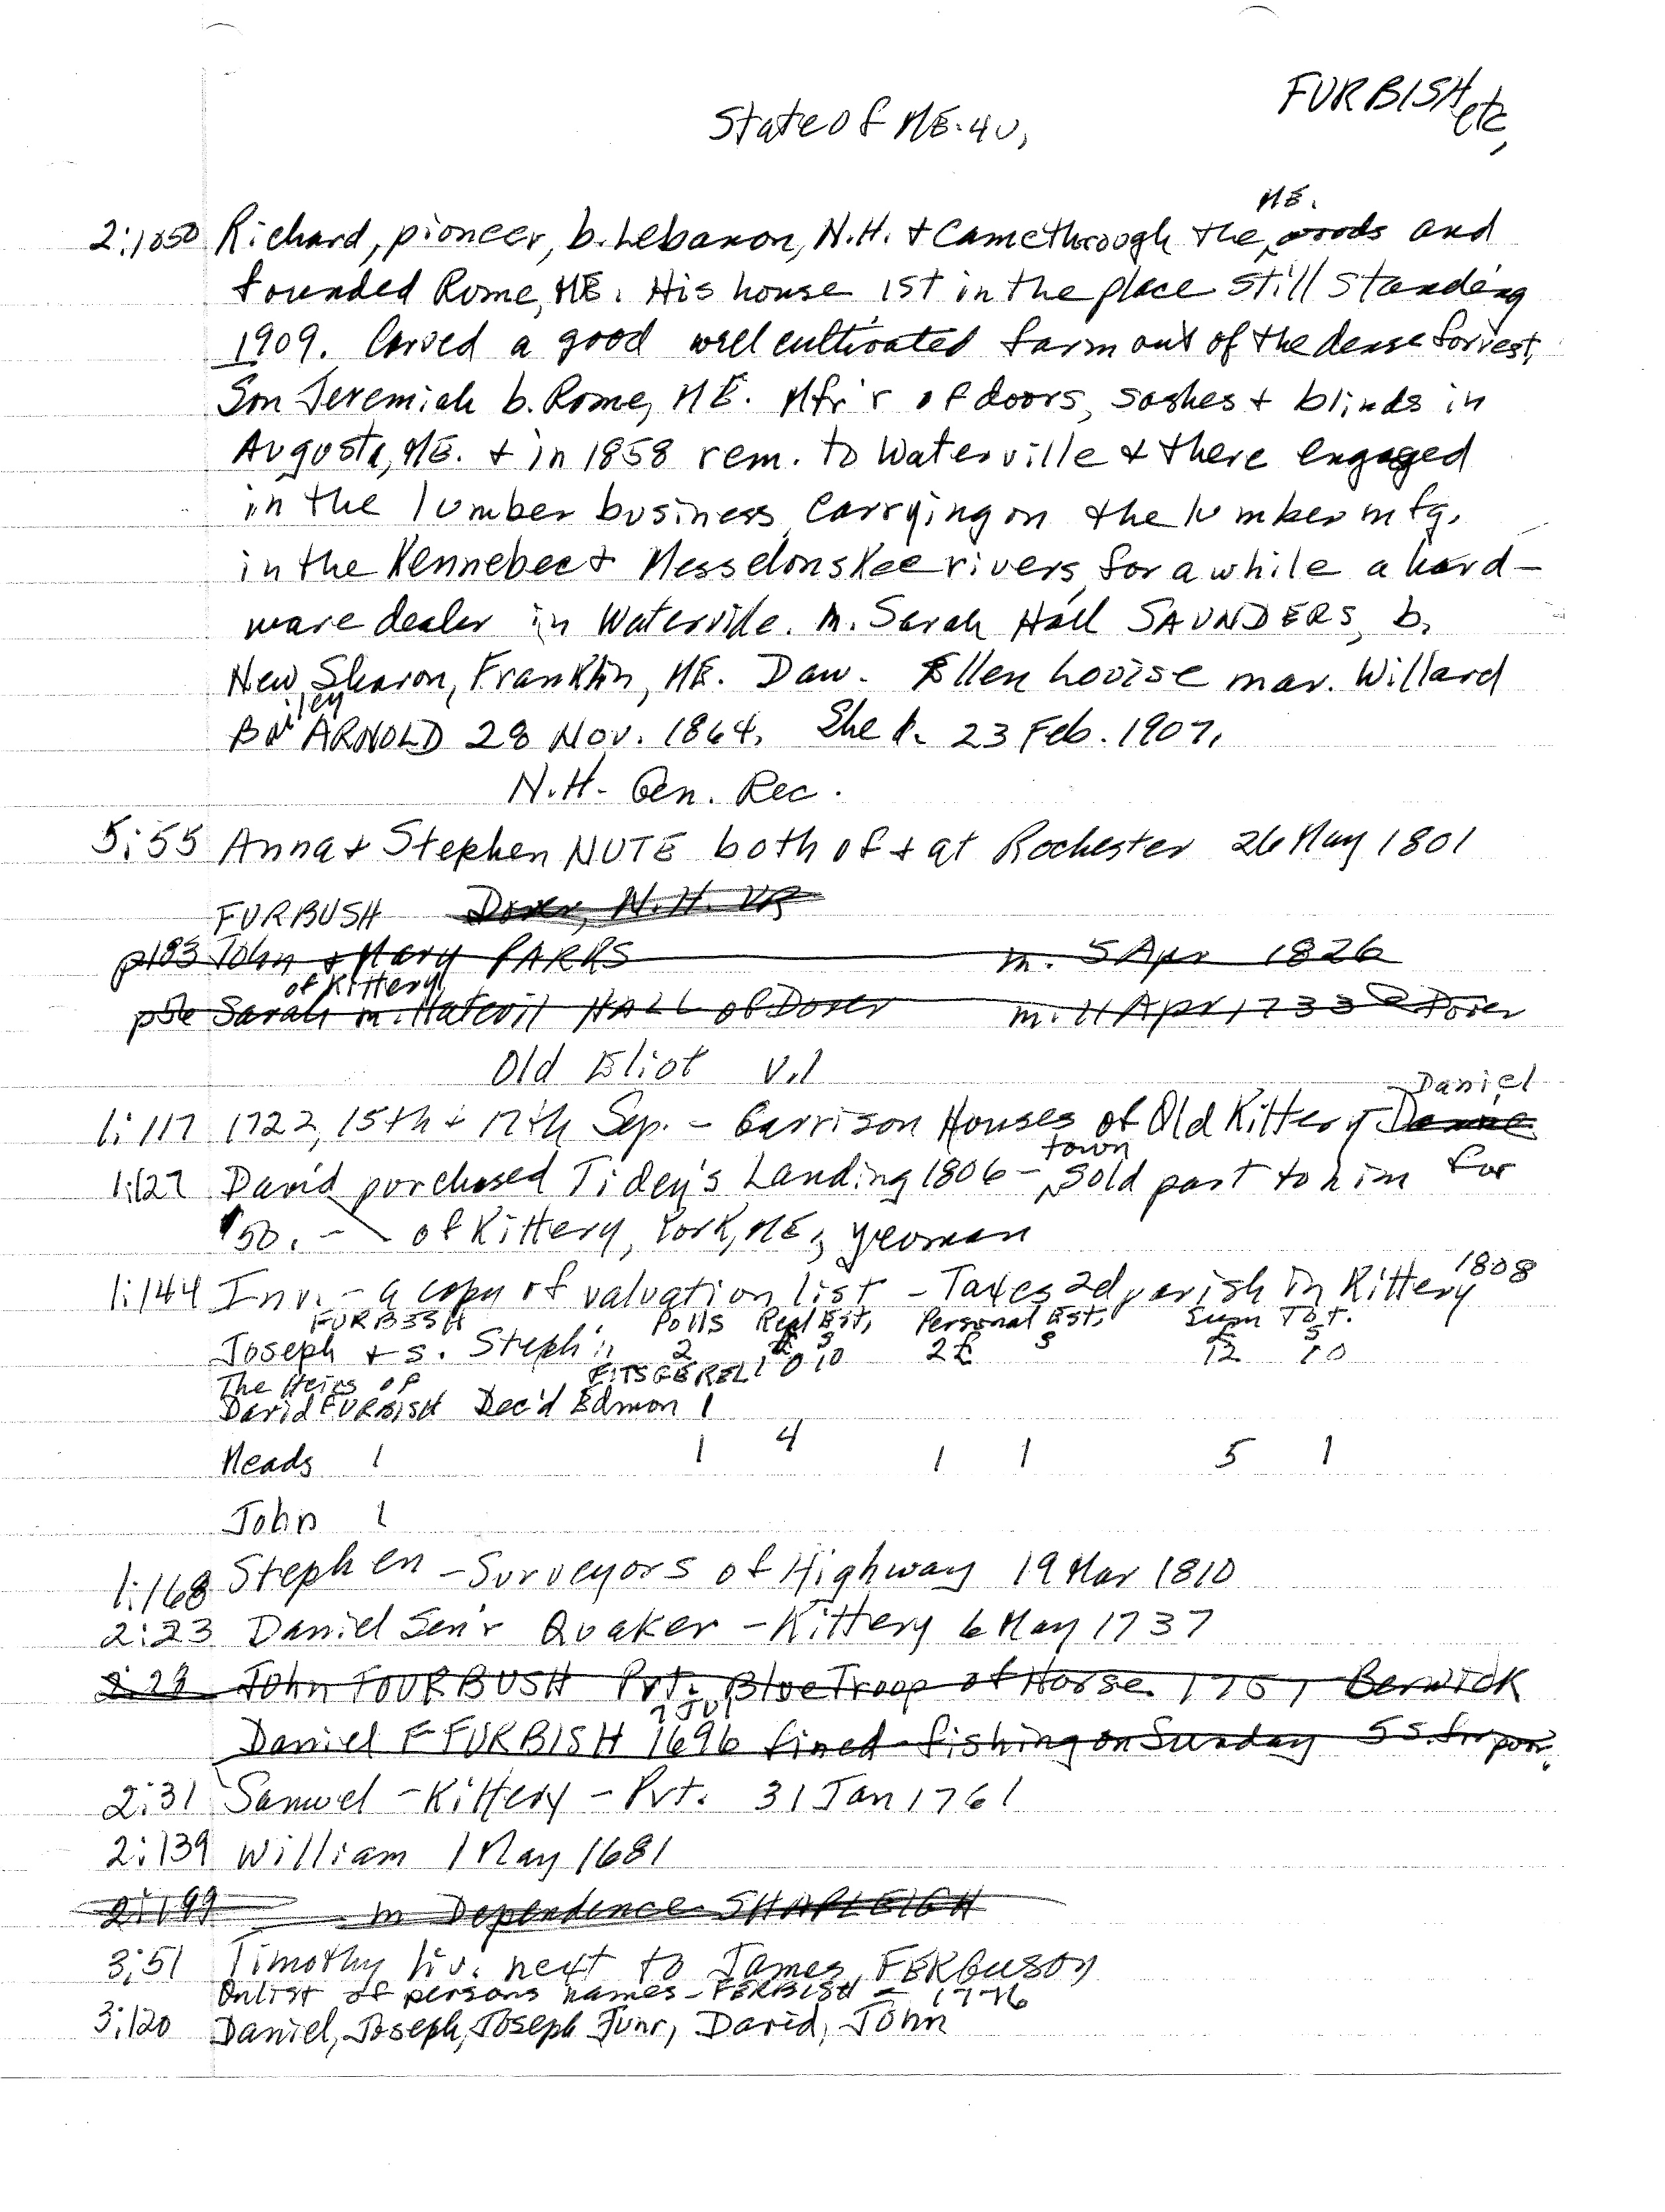 FURBISH etc,
State of ME. 40,
ME.
2:1050 Richard, pioneer, b. Lebanon, N.H. + came through the woods and
founded Rome, ME. His house 1st in the place still standing
1909. Carved a good well cultivated farm out of the dense forrest,
Son Jeremiah b. Rome, ME. Mfr'r of doors, sashes + blinds in
Augusta, ME. + in 1858 rem. to Waterville + there engaged
in the lumber business, carrying on the lumber mfg.
in the Kennebec + Messelonskee rivers, for a while a hard-
ware dealer in Waterville. m. Sarah Hall SAUNDERS, b.
New Sharon, Franklin, ME. Daw. Ellen Louise mar. Willard
Bailey ARNOLD 28 Nov. 1864. She d. 23 Feb. 1907.
N.H. Gen. Rec.
5:55 Anna + Stephen NUTE both of + at Rochester 26 May 1801
FURBUSH Dover, N.H. VR
p183 John + Mary PARKS m. 5 Apr 1826
of Kittery
p56 Sarah m. Hatevil HALL of Dover m. 11 Apr 1733 @ Dover
Old Eliot v.1
Daniel
1:117 1722, 15th + 17th Sep. - Garrison Houses of Old Kittery -
town
1:127 David purchased Tidey's Landing 1806 - sold part to him for
$50. - of Kittery, York, ME, yeoman
1:144 Inv. - a copy of valuation list - Taxes 2d parish in Kittery 1808
FURBISH Polls Real Est, Personal Est, Sum Tot.
Joseph + s. Steph'n 2 1 0 10 2£ s 12 10
The Heirs of FITSGERELL
David FURBISH Dec'd Edmon 1
Heads 1 1 4 1 1 5 1
John 1
1:168 Stephen - Surveyors of Highway 19 Mar 1810
2:23 Daniel Sen'r Quaker - Kittery 6 May 1737
2:29 John FOURBUSH Pvt. Blue Troop of Horse 1757 Berwick
1 Jul
Daniel FFURBISH 1696 fined - fishing on Sunday 5s. for poor.
2:31 Samuel - Kittery - Pvt. 31 Jan 1761
2:139 William 1 May 1681
2:199 m Dependence SHAPLEIGH
3:51 Timothy liv. next to James FERGUSON
On list of persons names - FERBISH - 1776
3:120 Daniel, Joseph, Joseph Junr, David, John